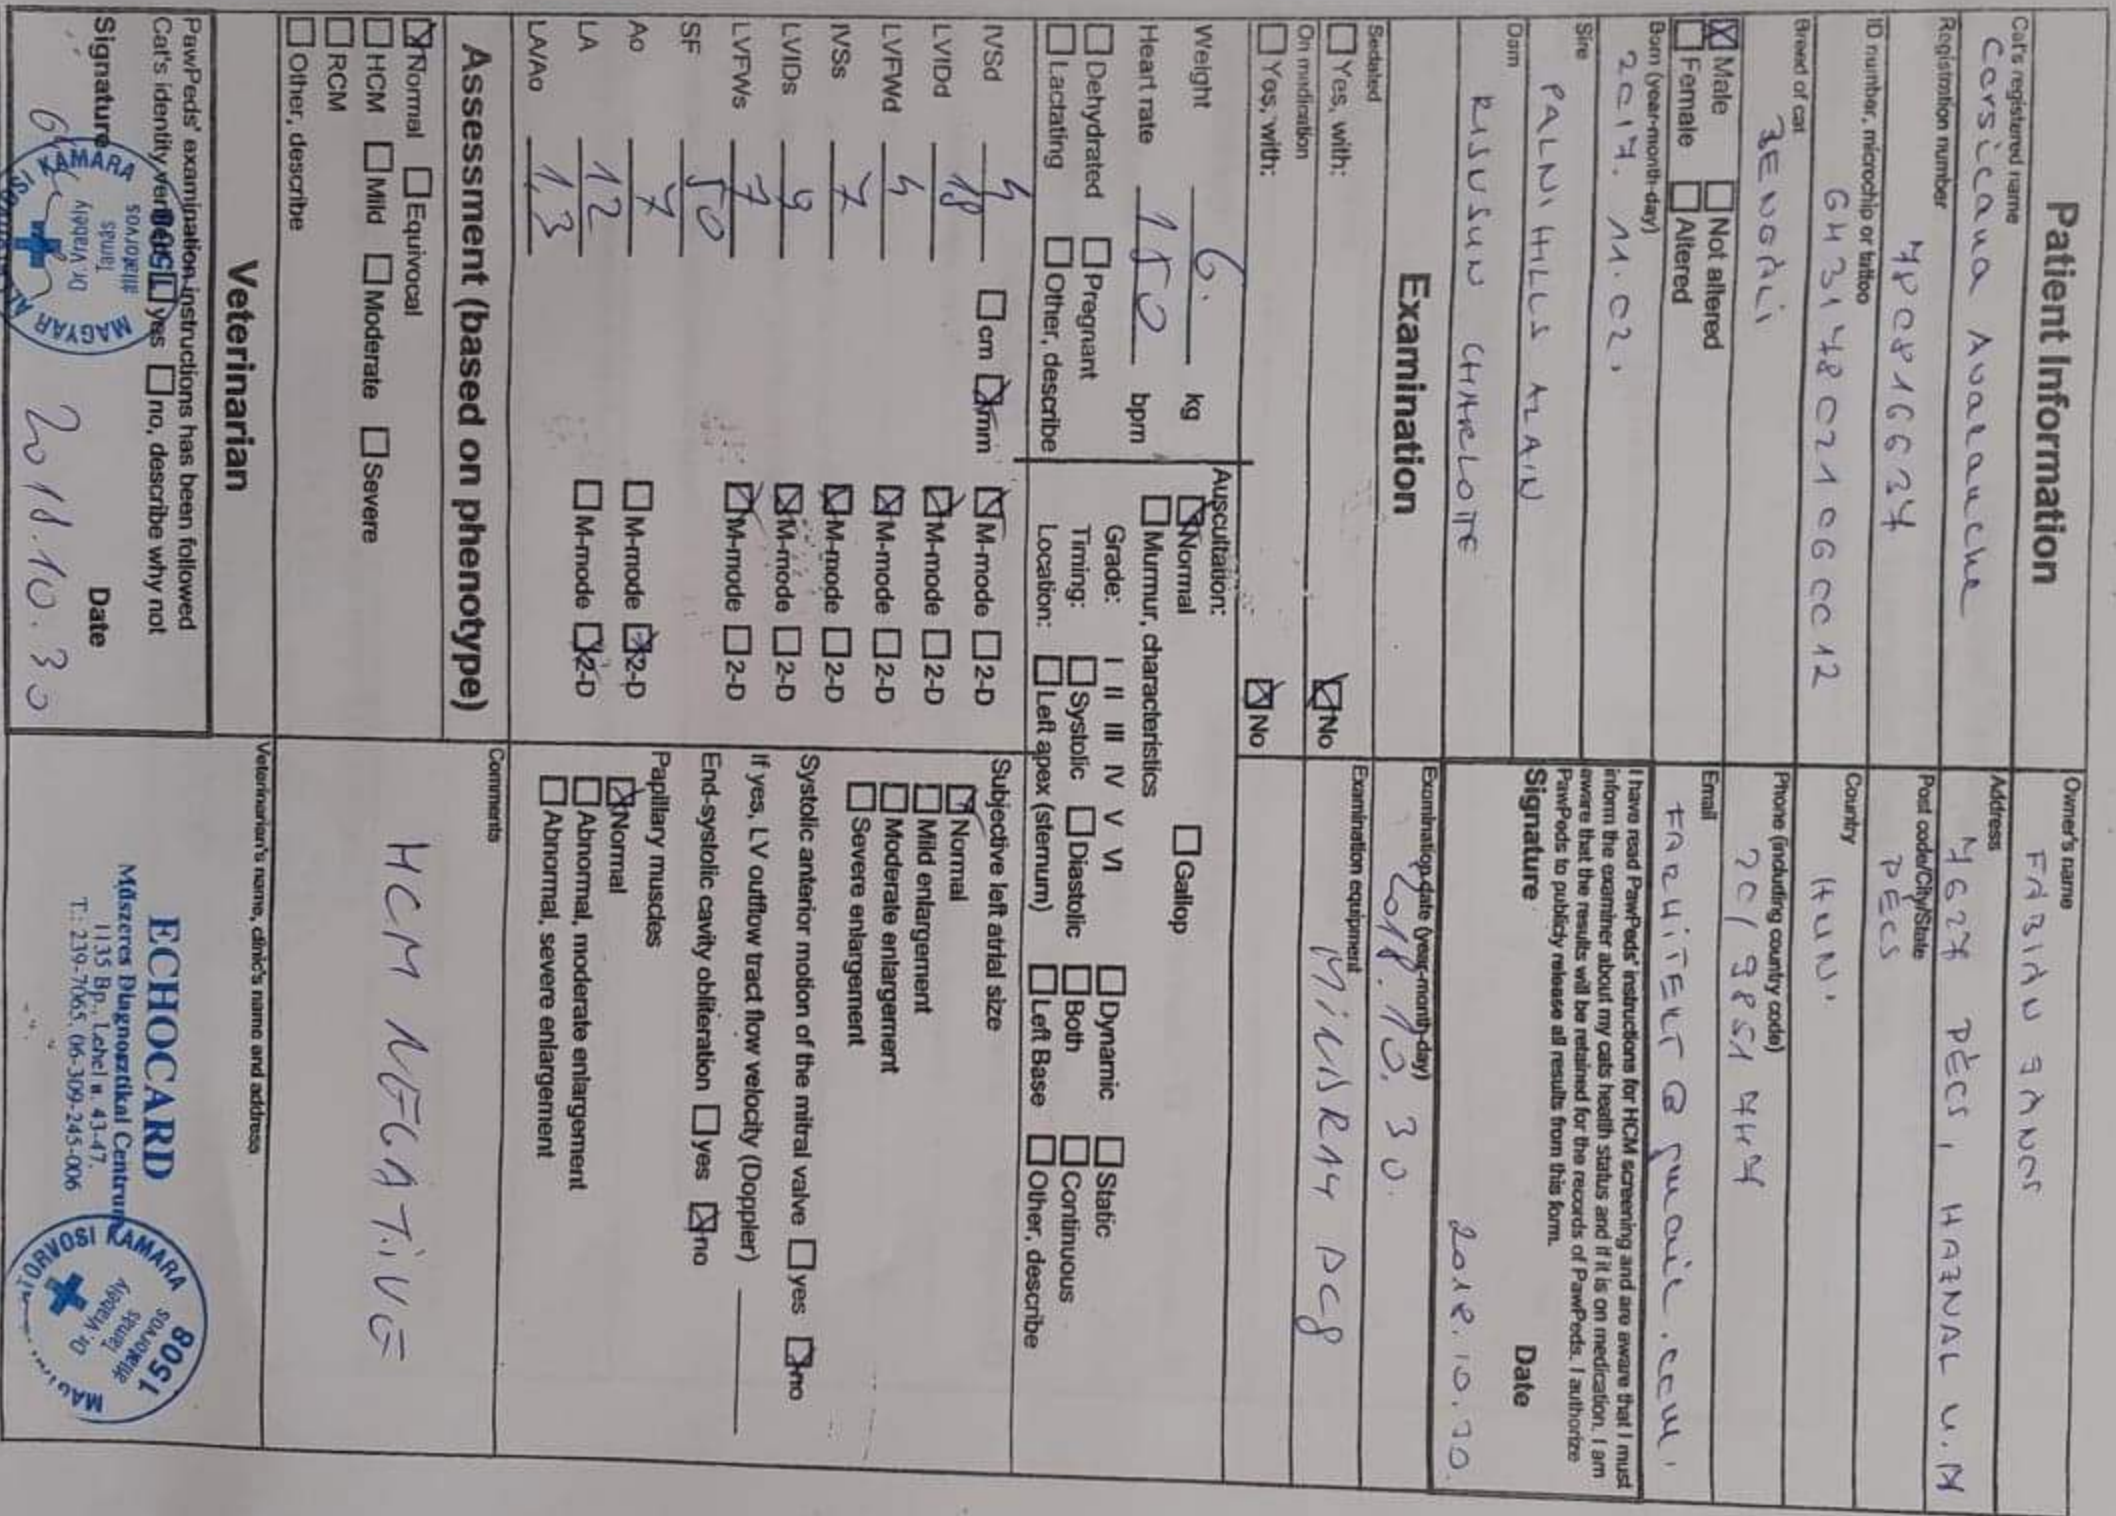 Patient Information
Cat's registered name
Corsicana Avalanche
Registration number
ID number, microchip or tattoo
Breed of cat
BENGÁLI
☒ Male ☐ Not altered
☐ Female ☐ Altered
Born (year-month-day)
2017. 11. 02.
Sire
PALNI HILLS AZAIN
Dam
RISUSUN CHARLOTTE
Owner's name
FÁBIÁN JÁNOS
Address
7627 PÉCS, HAJNAL U.
Post code/City/State
PÉCS
Country
HUN.
Phone (including country code)
Email
I have read PawPeds' instructions for HCM screening and are aware that I must
inform the examiner about my cats health status and if it is on medication. I am
aware that the results will be retained for the records of PawPeds. I authorize
PawPeds to publicly release all results from this form.
Signature Date
2018.10.30.
Examination
Sedated
☐ Yes, with: ☒ No
On medication
☐ Yes, with: ☒ No
Examination date (year-month-day)
2018. 10. 30.
Examination equipment
MINDRAY DC8
Weight 6. kg
Heart rate 180 bpm
☐ Dehydrated ☐ Pregnant
☐ Lactating ☐ Other, describe
Auscultation:
☒ Normal ☐ Gallop
☐ Murmur, characteristics
Grade: I II III IV V VI ☐ Dynamic ☐ Static
Timing: ☐ Systolic ☐ Diastolic ☐ Both ☐ Continuous
Location: ☐ Left apex (sternum) ☐ Left Base ☐ Other, describe
☐ cm ☒ mm
IVSd 4 ☒ M-mode ☐ 2-D
LVIDd 18 ☒ M-mode ☐ 2-D
LVFWd 4 ☒ M-mode ☐ 2-D
IVSs 7 ☒ M-mode ☐ 2-D
LVIDs 9 ☒ M-mode ☐ 2-D
LVFWs 7 ☒ M-mode ☐ 2-D
SF 50
Ao ☐ M-mode ☒ 2-D
LA 12 ☐ M-mode ☒ 2-D
LA/Ao 1,3
Subjective left atrial size
☒ Normal
☐ Mild enlargement
☐ Moderate enlargement
☐ Severe enlargement
Systolic anterior motion of the mitral valve ☐ yes ☒ no
If yes, LV outflow tract flow velocity (Doppler)
End-systolic cavity obliteration ☐ yes ☒ no
Papillary muscles
☒ Normal
☐ Abnormal, moderate enlargement
☐ Abnormal, severe enlargement
Assessment (based on phenotype)
☒ Normal ☐ Equivocal
☐ HCM ☐ Mild ☐ Moderate ☐ Severe
☐ RCM
☐ Other, describe
Comments
HCM NEGATIVE
Veterinarian
PawPeds' examination instructions has been followed
Cat's identity verified ☐ yes ☐ no, describe why not
Signature Date
2018.10.30
1508
állatorvos
Tamás
Dr. Vrabély
MAGYAR
KAMARA
Veterinarian's name, clinic's name and address
ECHOCARD
Műszeres Diagnosztikai Centrum
1135 Bp., Lehel u. 43-47.
T.: 239-7065, 06-309-245-006
KAMARA
1508
állatorvos
Tamás
Dr. Vrabély